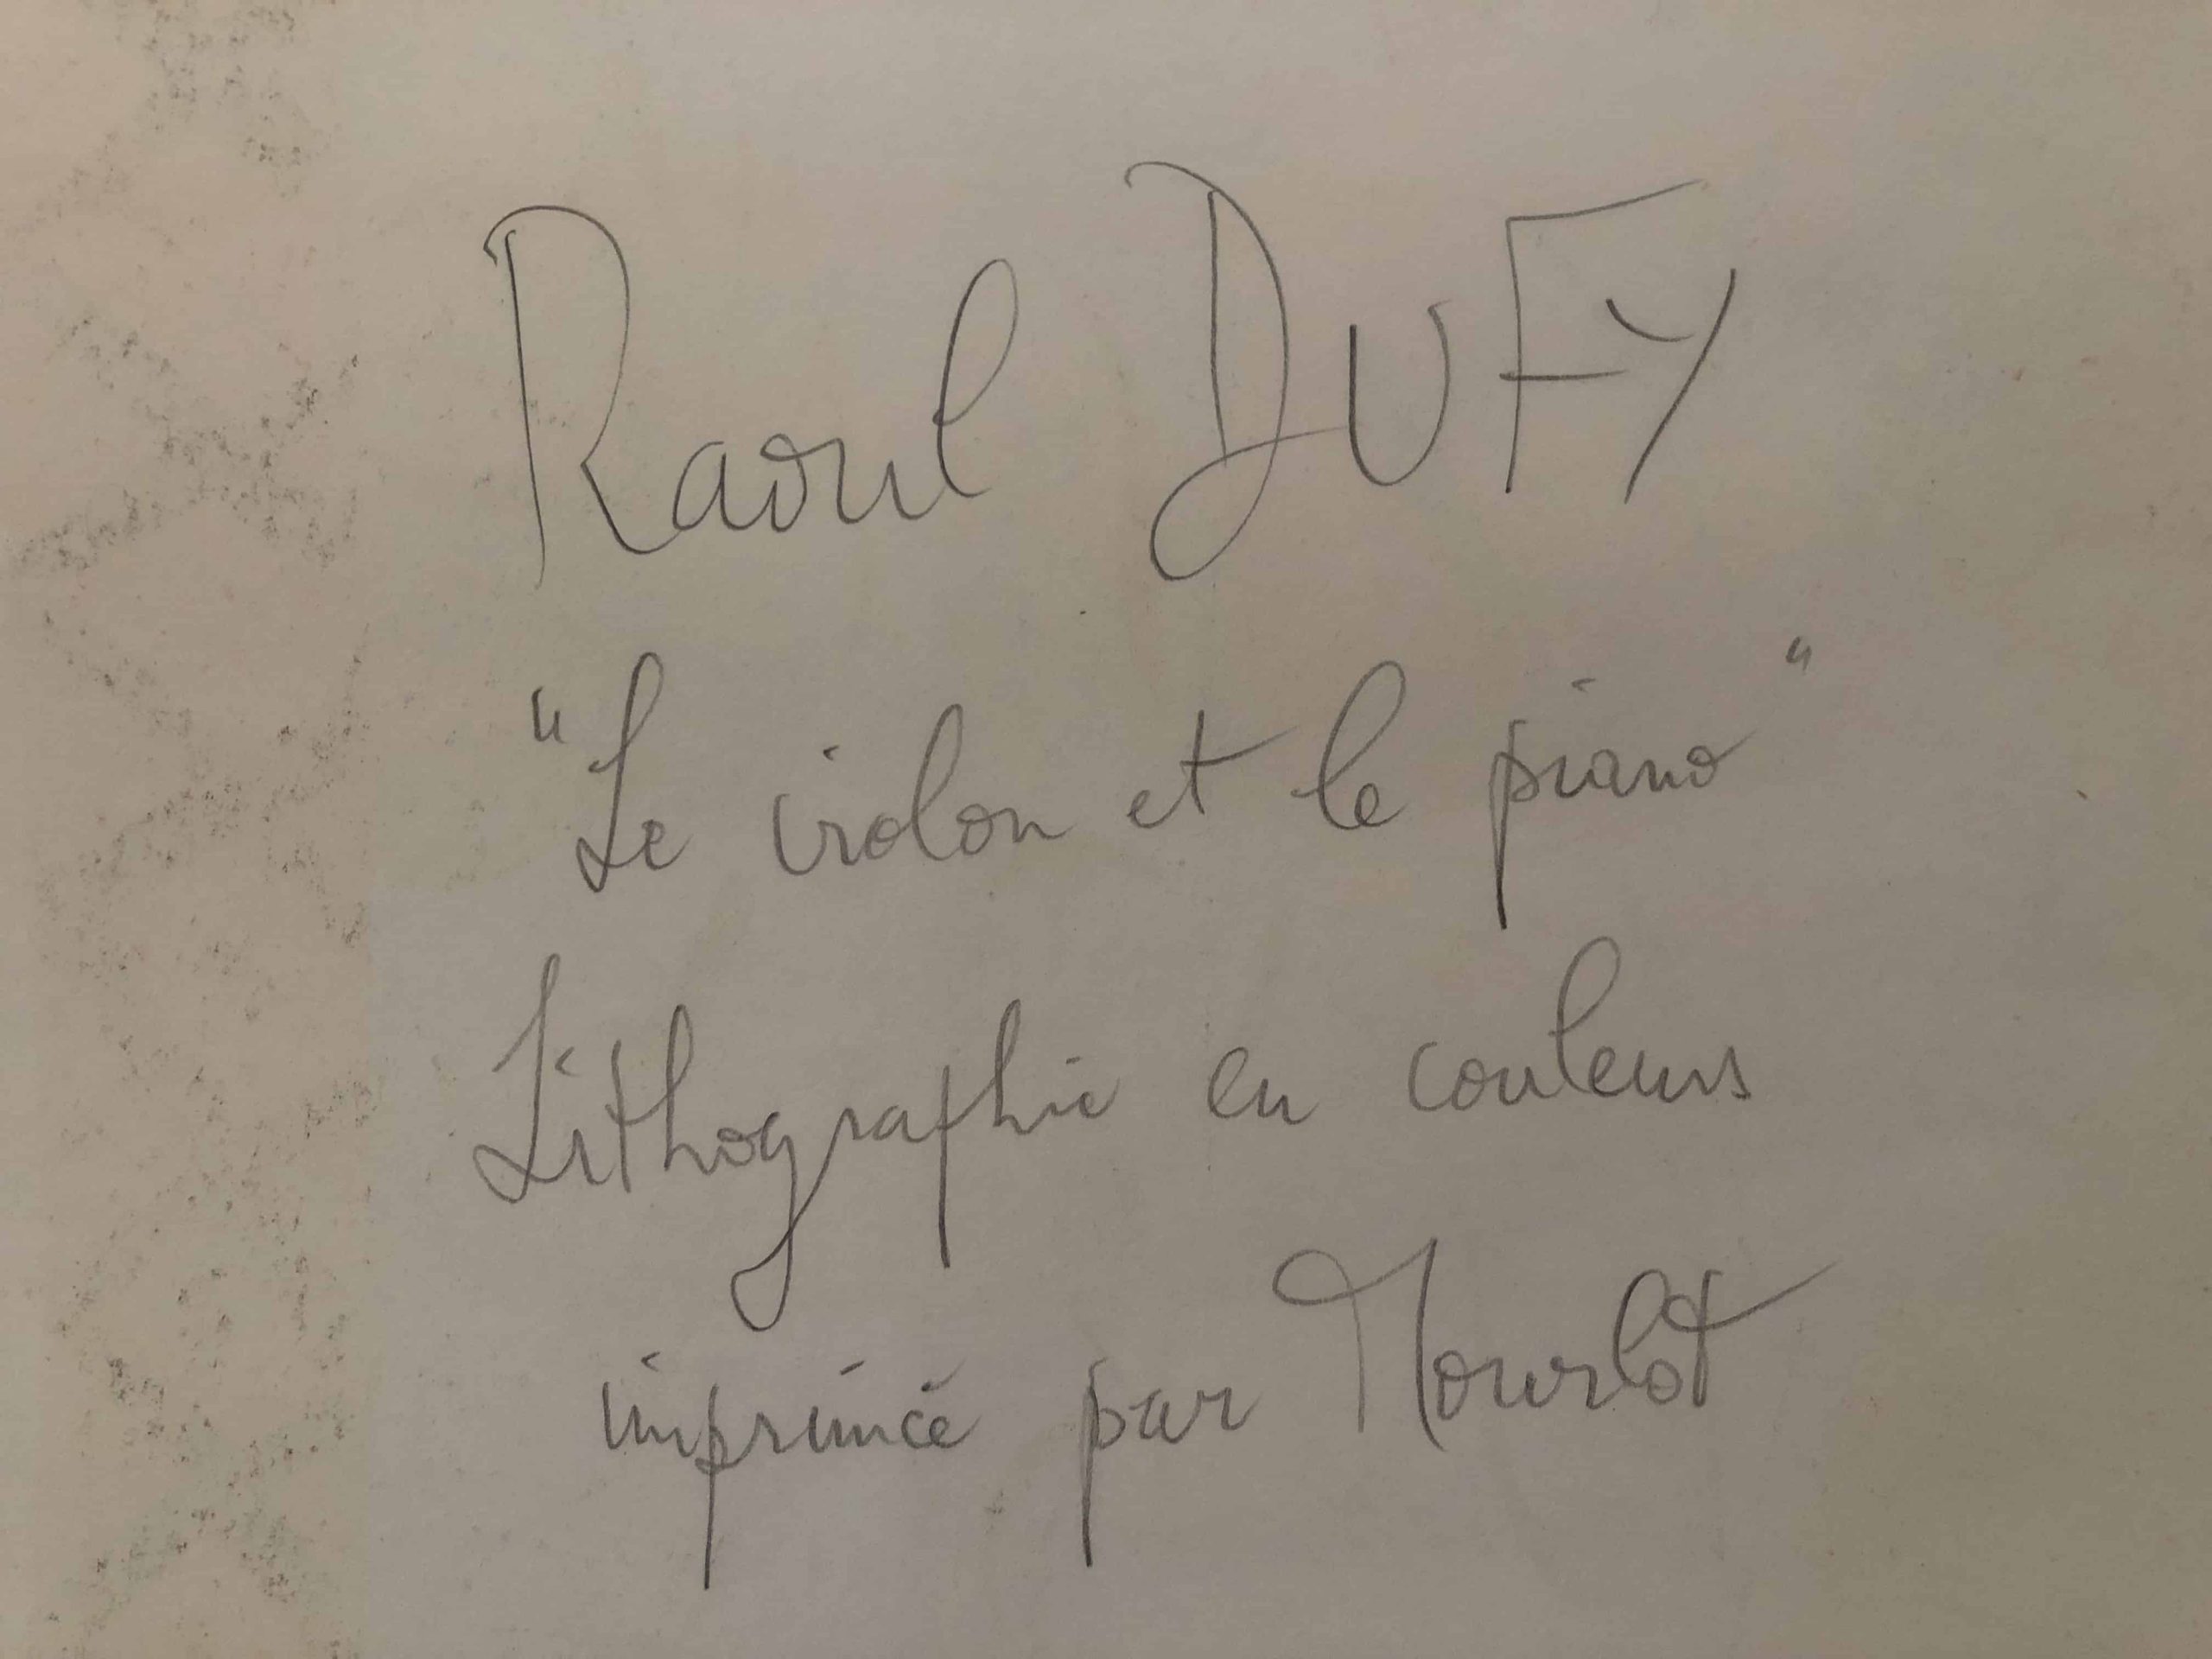 Raoul DUFY
"Le violon et le piano"
Lithographie en couleurs
imprimée par Mourlot